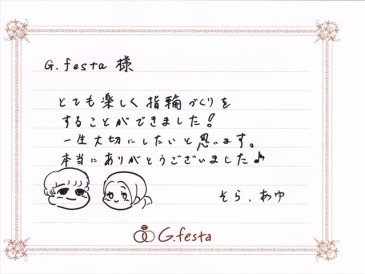 G.festa 様
とても楽しく指輪づくりを
することができました!
一生大切にしたいと思います。
本当にありがとうございました♪
そら、あゆ
G.festa